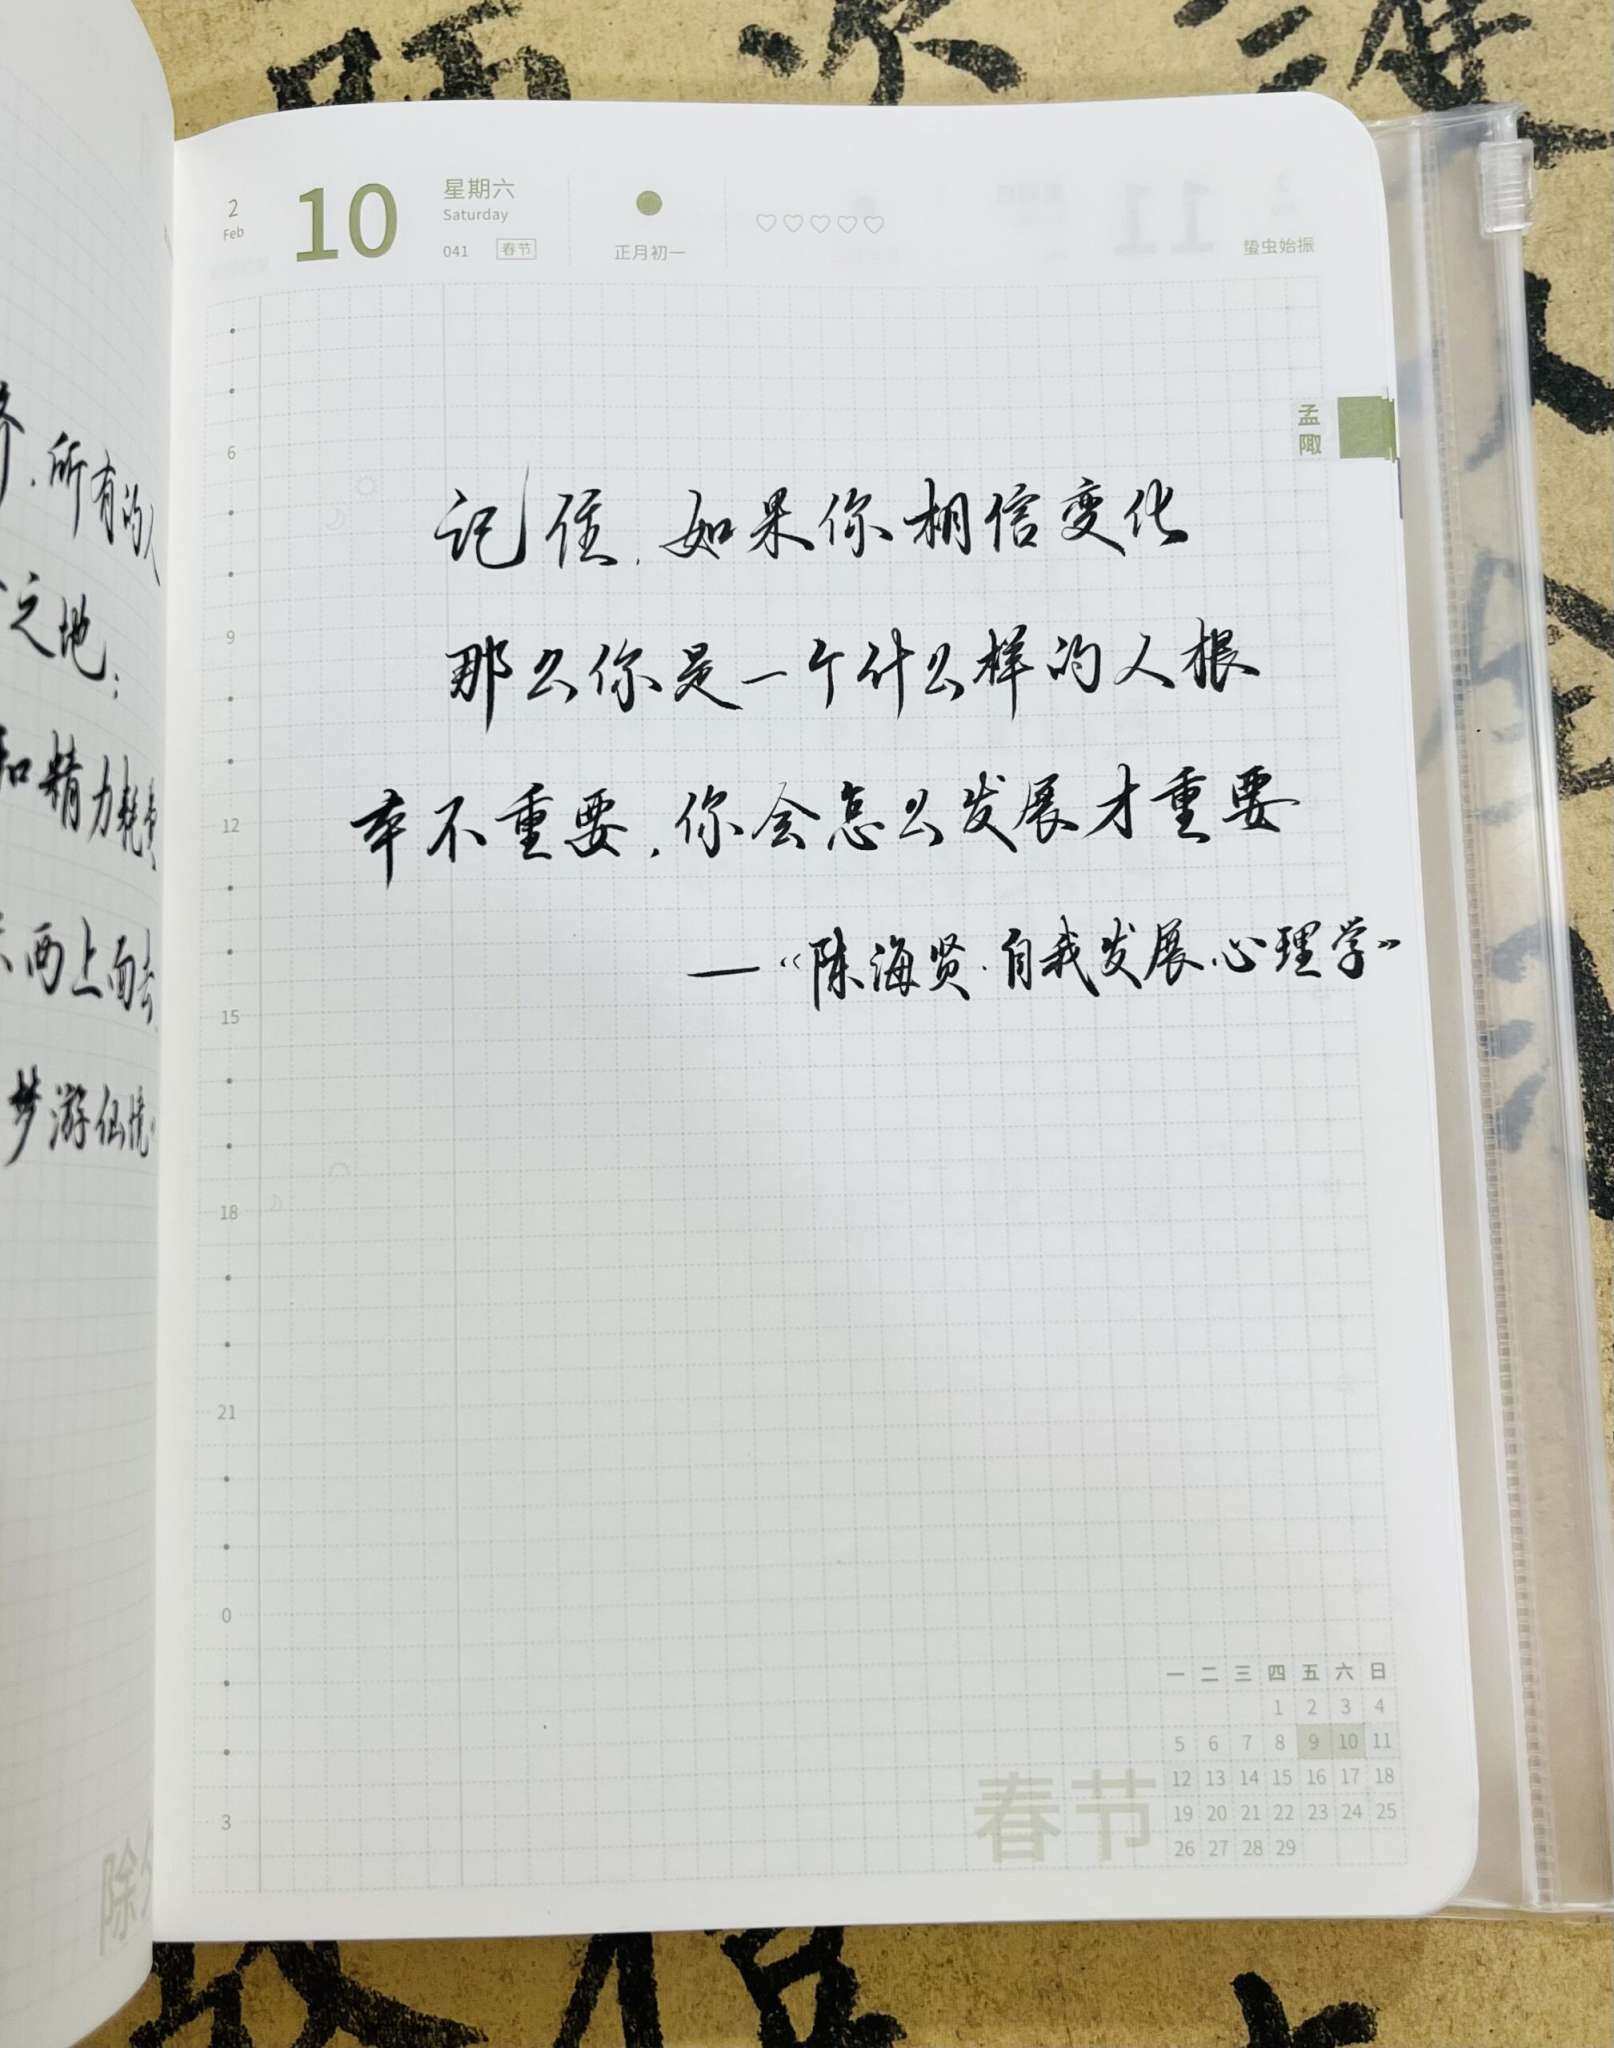 2
Feb
10
星期六
Saturday
041 春节
正月初一
蛰虫始振
孟
陬
6
记住,如果你相信变化
9
那么你是一个什么样的人根
12
本不重要,你会怎么发展才重要
——“陈海贤·自我发展心理学”
15
18
21
0
3
春节
一 二 三 四 五 六 日
1 2 3 4
5 6 7 8 9 10 11
12 13 14 15 16 17 18
19 20 21 22 23 24 25
26 27 28 29
所有的人
之地;
和精力耗费
西上面去
梦游仙境
除